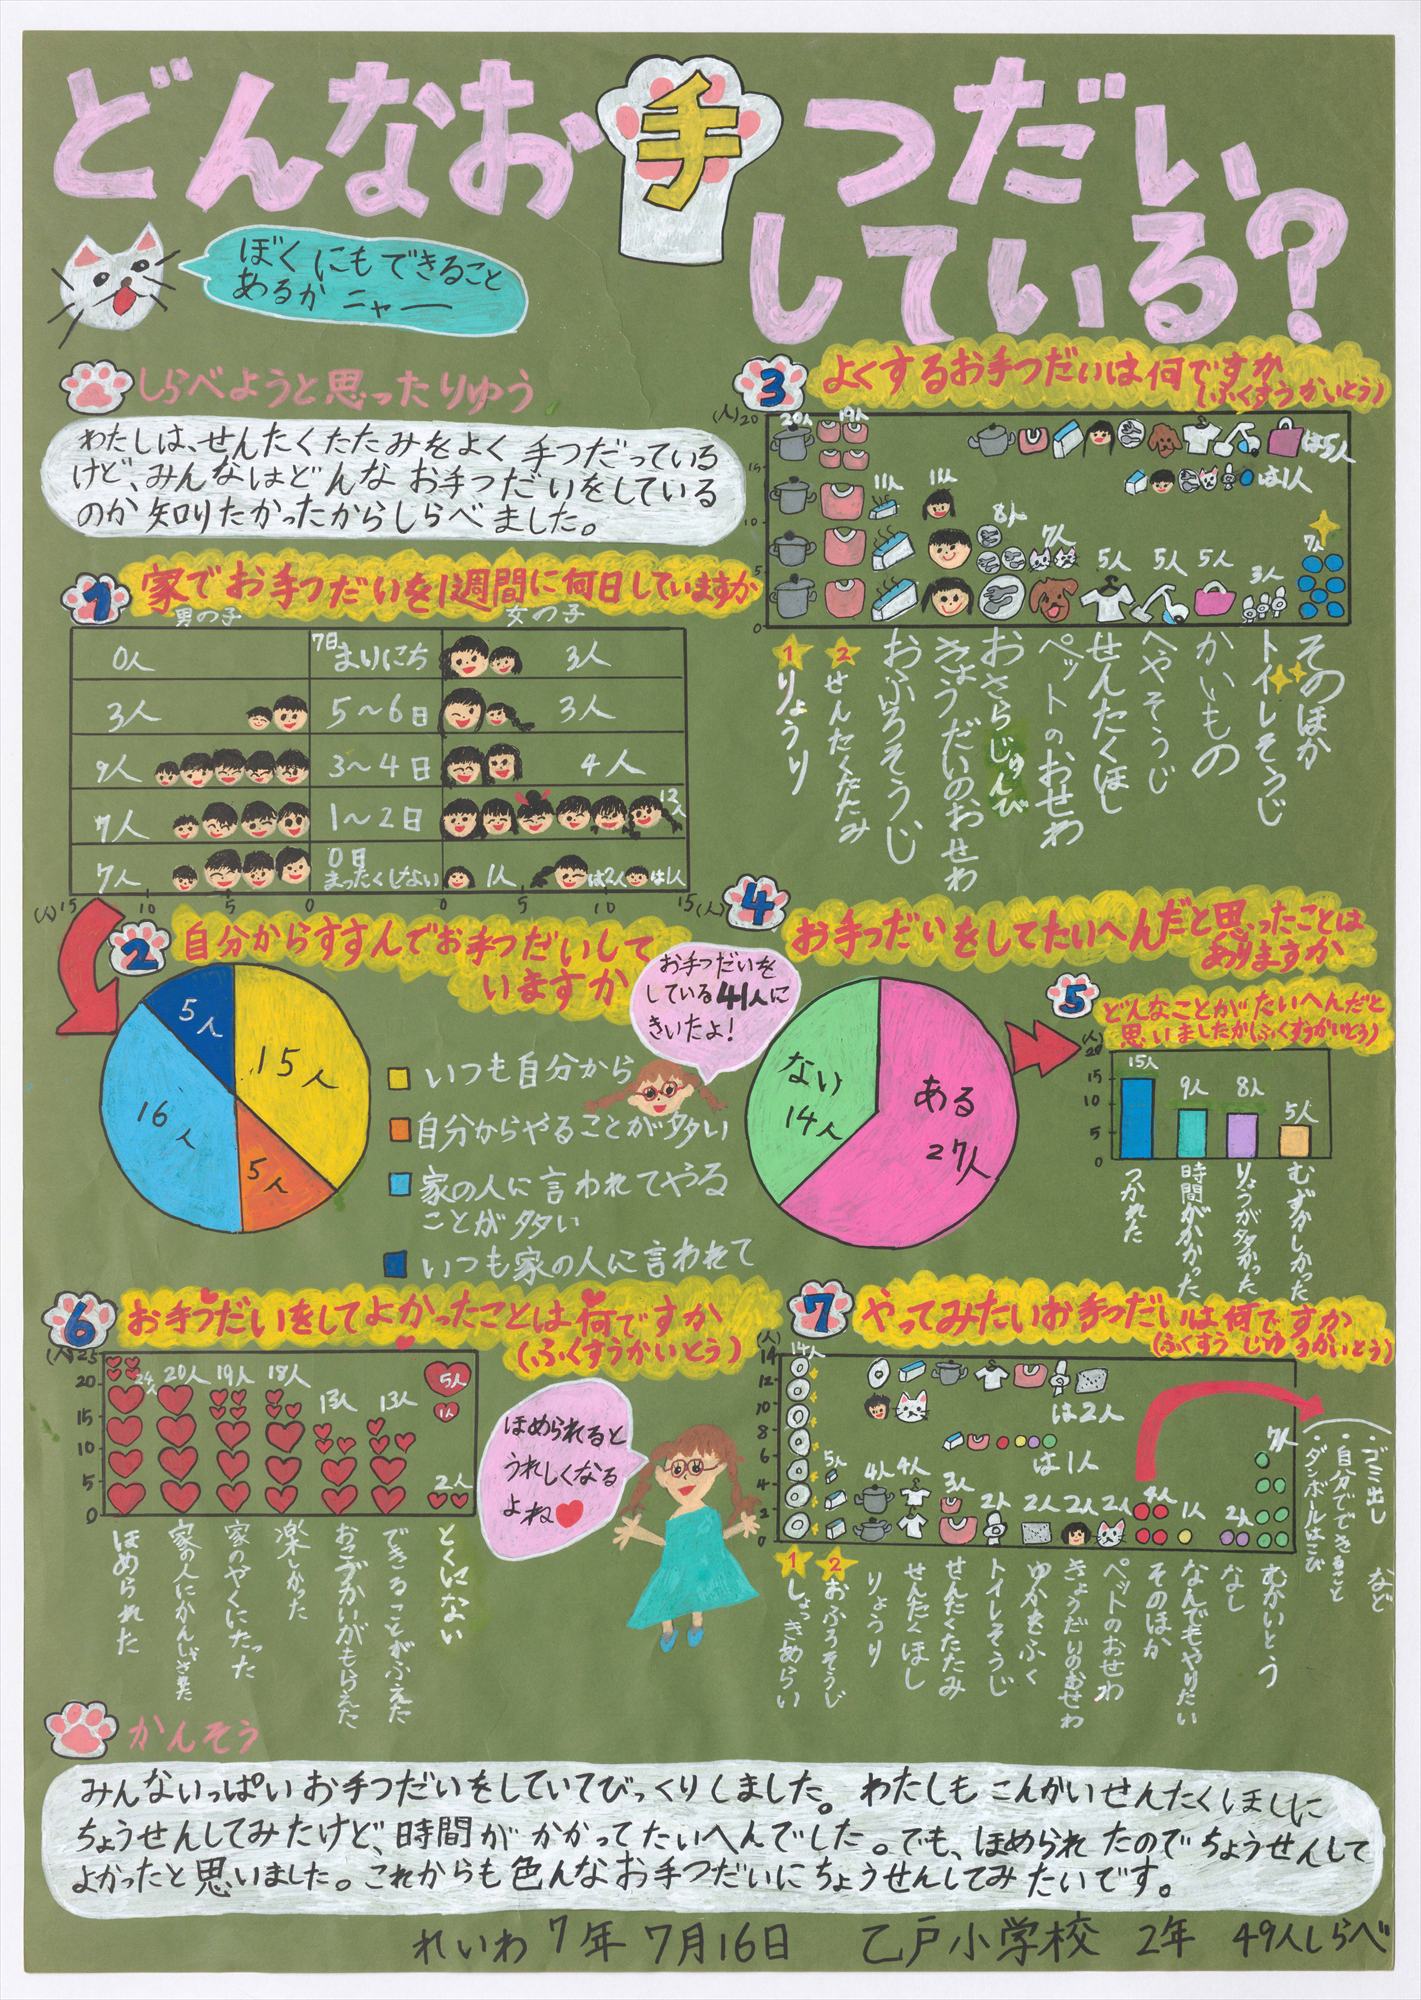 どんなお手つだい
している?
ぼくにもできること
あるかニャー
しらべようと思ったりゆう
わたしは、せんたくたたみをよく手つだっている
けど、みんなはどんなお手つだいをしている
のか知りたかったからしらべました。
1 家でお手つだいを1週間に何日していますか
男の子 女の子
0人 7日まいにち 3人
3人 5〜6日 3人
9人 3〜4日 4人
7人 1〜2日 12人
7人 0日まったくしない 1人 は2人 は1人
(人)15 10 5 0 0 5 10 15(人)
2 自分からすすんでお手つだいして
いますか
5人
15人
16人
5人
いつも自分から
自分からやることが多い
家の人に言われてやる
ことが多い
いつも家の人に言われて
お手つだいを
している41人に
きいたよ!
3 よくするお手つだいは何ですか
(ふくすうかいとう)
(人)
20
15
10
5
0
20人 19人 11人 11人 8人 7人 5人 5人 5人 3人 7人
は5人
は1人
1 りょうり
2 せんたくたたみ
おふろそうじ
きょうだいのおせわ
おさらじゅんび
ペットのおせわ
せんたくほし
へやそうじ
かいもの
トイレそうじ
そのほか
4 お手つだいをしてたいへんだと思ったことは
ありますか
ない
14人
ある
27人
5 どんなことがたいへんだと
思いましたか(ふくすうかいとう)
(人)
20
15
10
5
0
15人 9人 8人 5人
つかれた
時間がかかった
りょうが多かった
むずかしかった
6 お手つだいをしてよかったことは何ですか
(ふくすうかいとう)
(人)25
20
15
10
5
0
24人 20人 19人 18人 13人 13人 2人
5人
1人
ほめられた
家の人にかんしゃされた
家のやくにたった
楽しかった
おこづかいがもらえた
できることがふえた
とくにない
ほめられると
うれしくなる
よね
7 やってみたいお手つだいは何ですか
(ふくすう じゆうかいとう)
(人)
14
12
10
8
6
4
2
0
14人 5人 4人 4人 3人 2人 2人 2人 2人 4人 1人 2人 7人
は2人
は1人
1 しょっきあらい
2 おふろそうじ
りょうり
せんたくほし
せんたくたたみ
トイレそうじ
ゆかをふく
きょうだいのおせわ
ペットのおせわ
そのほか
なんでもやりたい
なし
むかいとう
・ゴミ出し
・自分でできること
・ダンボールはこび
など
かんそう
みんないっぱいお手つだいをしていてびっくりしました。わたしもこんかいせんたくほしに
ちょうせんしてみたけど、時間がかかってたいへんでした。でも、ほめられたのでちょうせんして
よかったと思いました。これからも色んなお手つだいにちょうせんしてみたいです。
れいわ7年7月16日 乙戸小学校 2年 49人しらべ